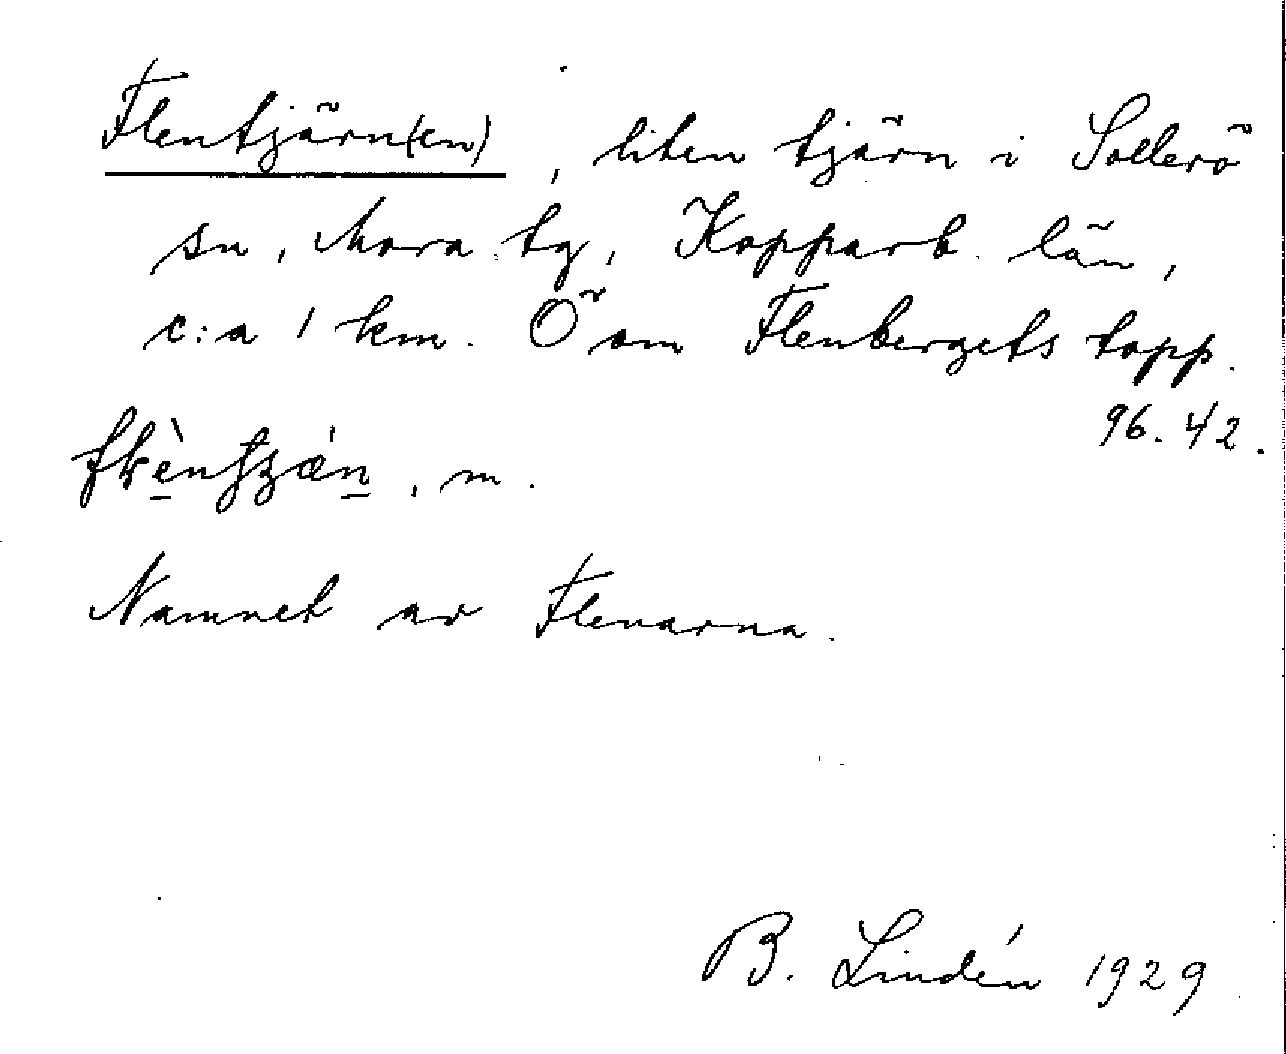 Flentjärn(en), liten tjärn i Sollerö
sn, Mora tg, Kopparb. län,
c:a 1 km. Ö om Flenbergets topp.
96.42.
, m.
Namnet av Flenarna.
B. Lindén 1929